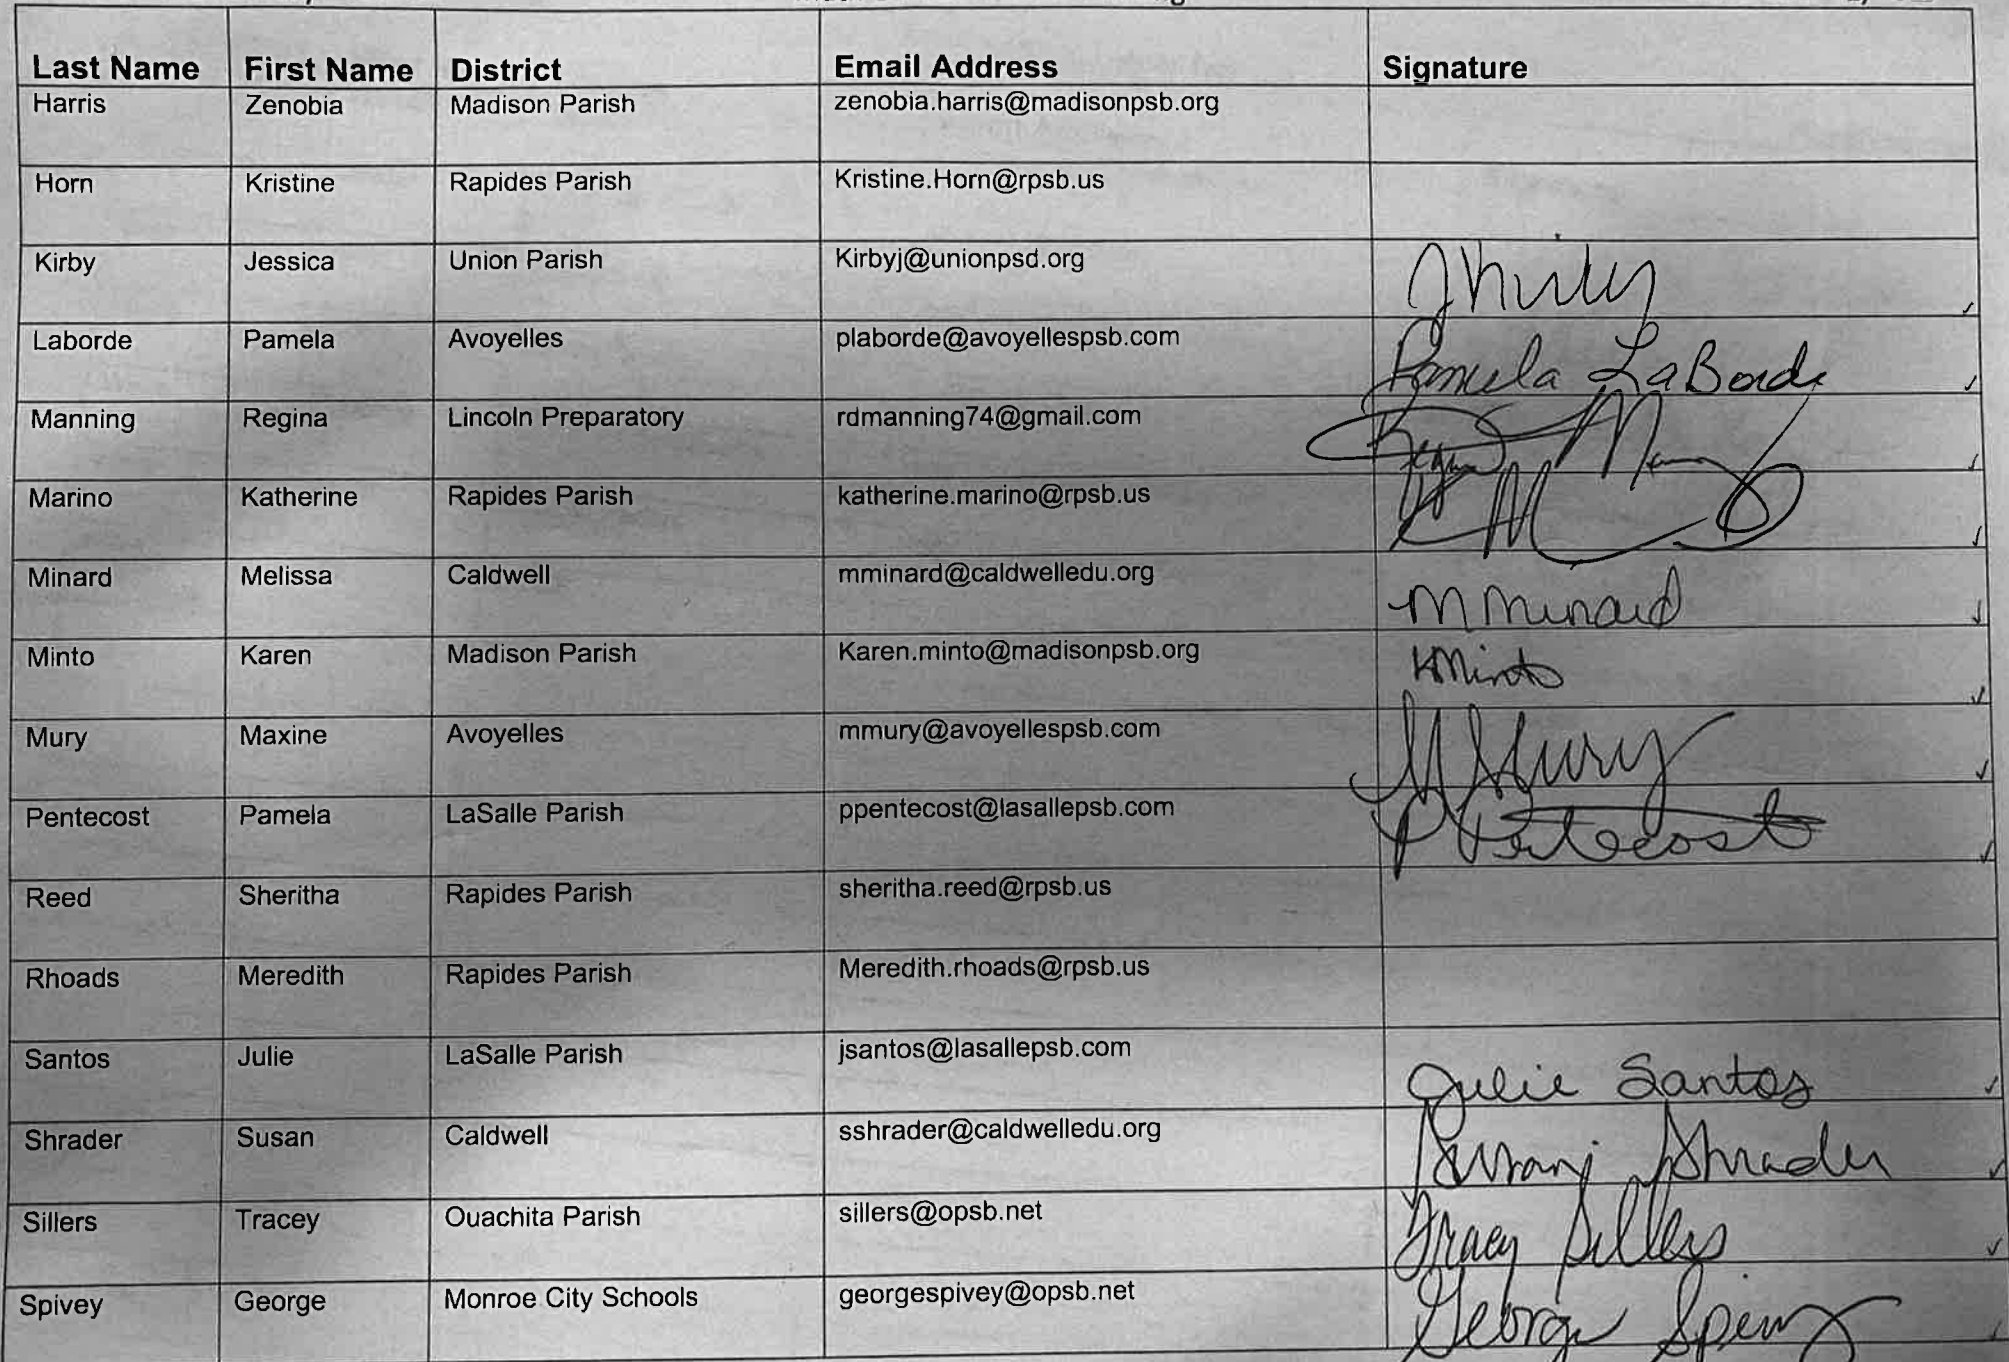 Last Name First Name District Email Address Signature
Harris Zenobia Madison Parish zenobia.harris@madisonpsb.org
Horn Kristine Rapides Parish Kristine.Horn@rpsb.us
Kirby Jessica Union Parish Kirbyj@unionpsd.org JKirby
Laborde Pamela Avoyelles plaborde@avoyellespsb.com Pamela LaBorde
Manning Regina Lincoln Preparatory rdmanning74@gmail.com
Marino Katherine Rapides Parish katherine.marino@rpsb.us
Minard Melissa Caldwell mminard@caldwelledu.org M Minard
Minto Karen Madison Parish Karen.minto@madisonpsb.org KMinto
Mury Maxine Avoyelles mmury@avoyellespsb.com M Mury
Pentecost Pamela LaSalle Parish ppentecost@lasallepsb.com P Pentecost
Reed Sheritha Rapides Parish sheritha.reed@rpsb.us
Rhoads Meredith Rapides Parish Meredith.rhoads@rpsb.us
Santos Julie LaSalle Parish jsantos@lasallepsb.com Julie Santos
Shrader Susan Caldwell sshrader@caldwelledu.org Shrader
Sillers Tracey Ouachita Parish sillers@opsb.net Tracey Sillers
Spivey George Monroe City Schools georgespivey@opsb.net George Spivey